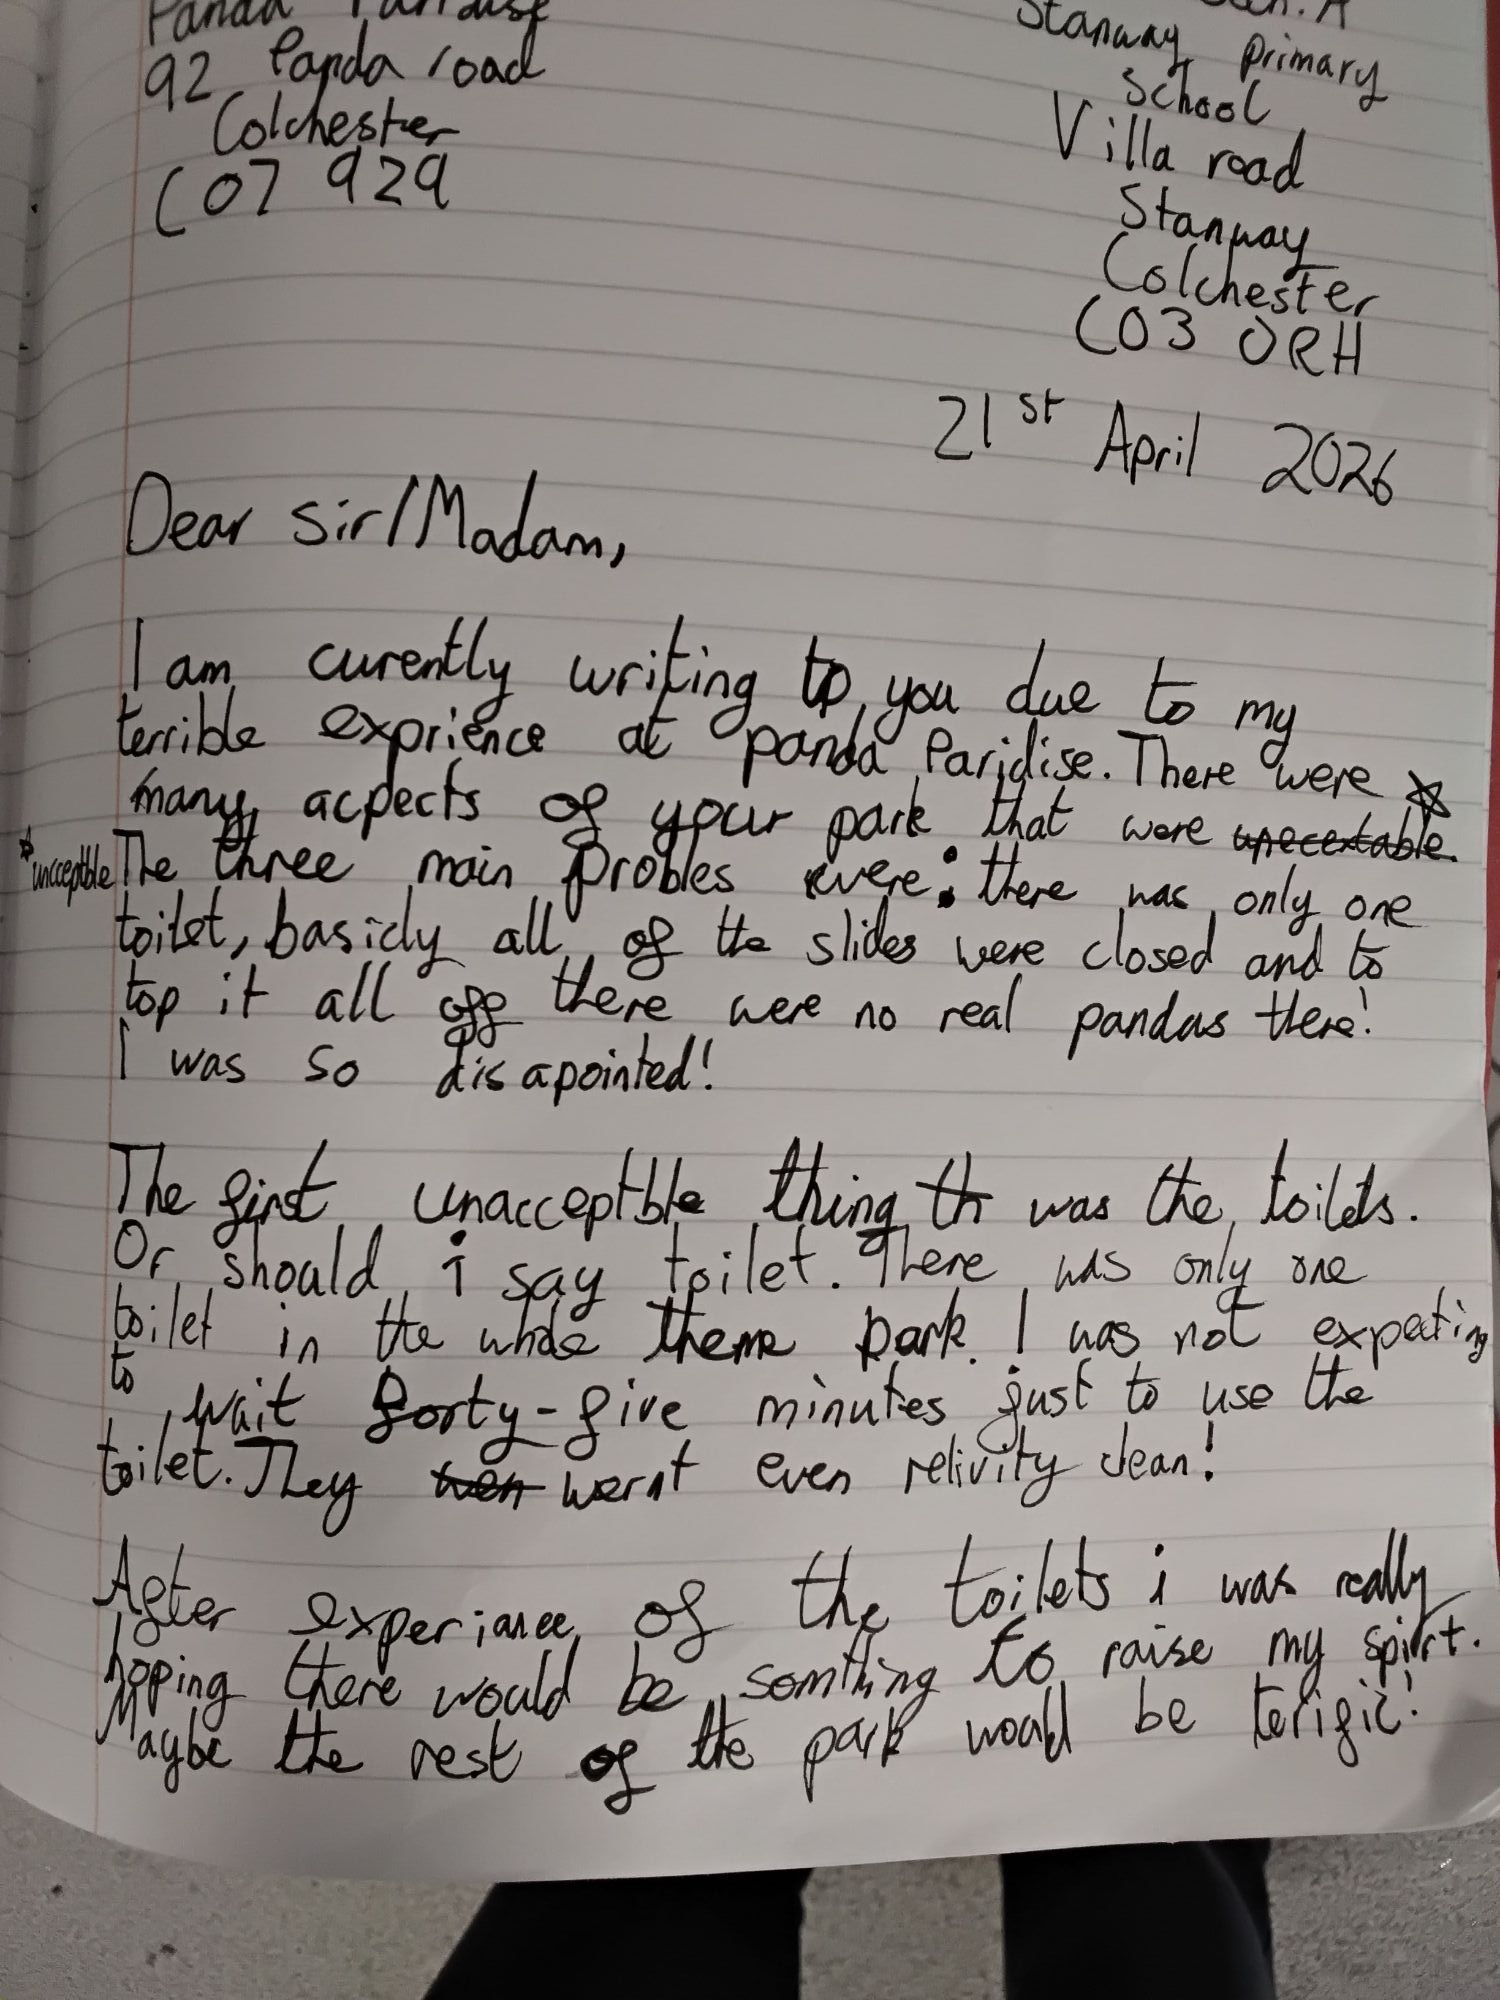 Panda Paridise
92 Panda road
Colchester
CO7 929
Stanway primary
School
Villa road
Stanway
Colchester
CO3 0RH
21st April 2026
Dear Sir/Madam,
I am curently writing to you due to my
terrible exprience at panda Paridise. There were
many acpects of your park that were unecextable.
*uncceptble
The three main probles were: there was only one
toilet, basicly all of the slides were closed and to
top it all off there were no real pandas there!
I was so disapointed!
The first unacceptble thing th was the toilets.
Or should i say toilet. There was only one
toilet in the whole theme park. I was not expecting
to
wait forty-five minutes just to use the
toilet. They wen wernt even relivity clean!
After experiance of the toilets i was really
hoping there would be somthing to raise my spirt.
Maybe the rest of the park would be terific!